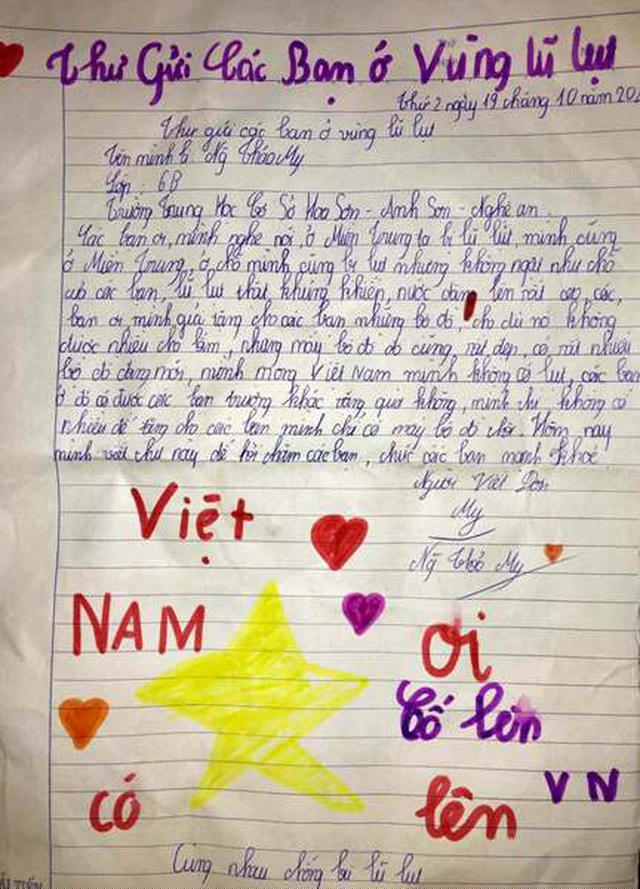 Thư Gửi Các Bạn ở Vùng lũ lụt
Thứ 2 ngày 19 tháng 10 năm 20
Thư gửi các bạn ở vùng lũ lụt
Tên mình là Ng Thảo My
Lớp : 6B
Trường Trung Học Cơ Sở Hoa Sơn - Anh Sơn - Nghệ an.
Các bạn ơi, mình nghe nói, ở Miền Trung ta bị lũ lụt, mình cũng
ở Miền Trung, ở chỗ mình cũng bị lụt nhưng không ngặt như chỗ
các bạn, lũ lụt thật khủng khiếp, nước dâng lên rất cao, các,
bạn ơi mình gửi tặng cho các bạn những bộ đồ, cho dù nó không
được nhiều cho lắm, nhưng mấy bộ đồ đó cũng rất đẹp, có rất nhiều
bộ đồ đang mới, mình mong Việt Nam mình không có lụt, các bạn
ở đó có được các bạn trường khác tặng quà không, mình chỉ không có
nhiều để tặng cho các bạn mình chỉ có mấy bộ đồ thôi. Hôm nay
mình viết thư này để hỏi thăm các bạn, chúc các bạn mạnh khoẻ
Người Viết Đơn
My
Ng Thảo My
Việt
NAM ơi
Cố lên
VN
có lên
Cùng nhau chống lũ lụt